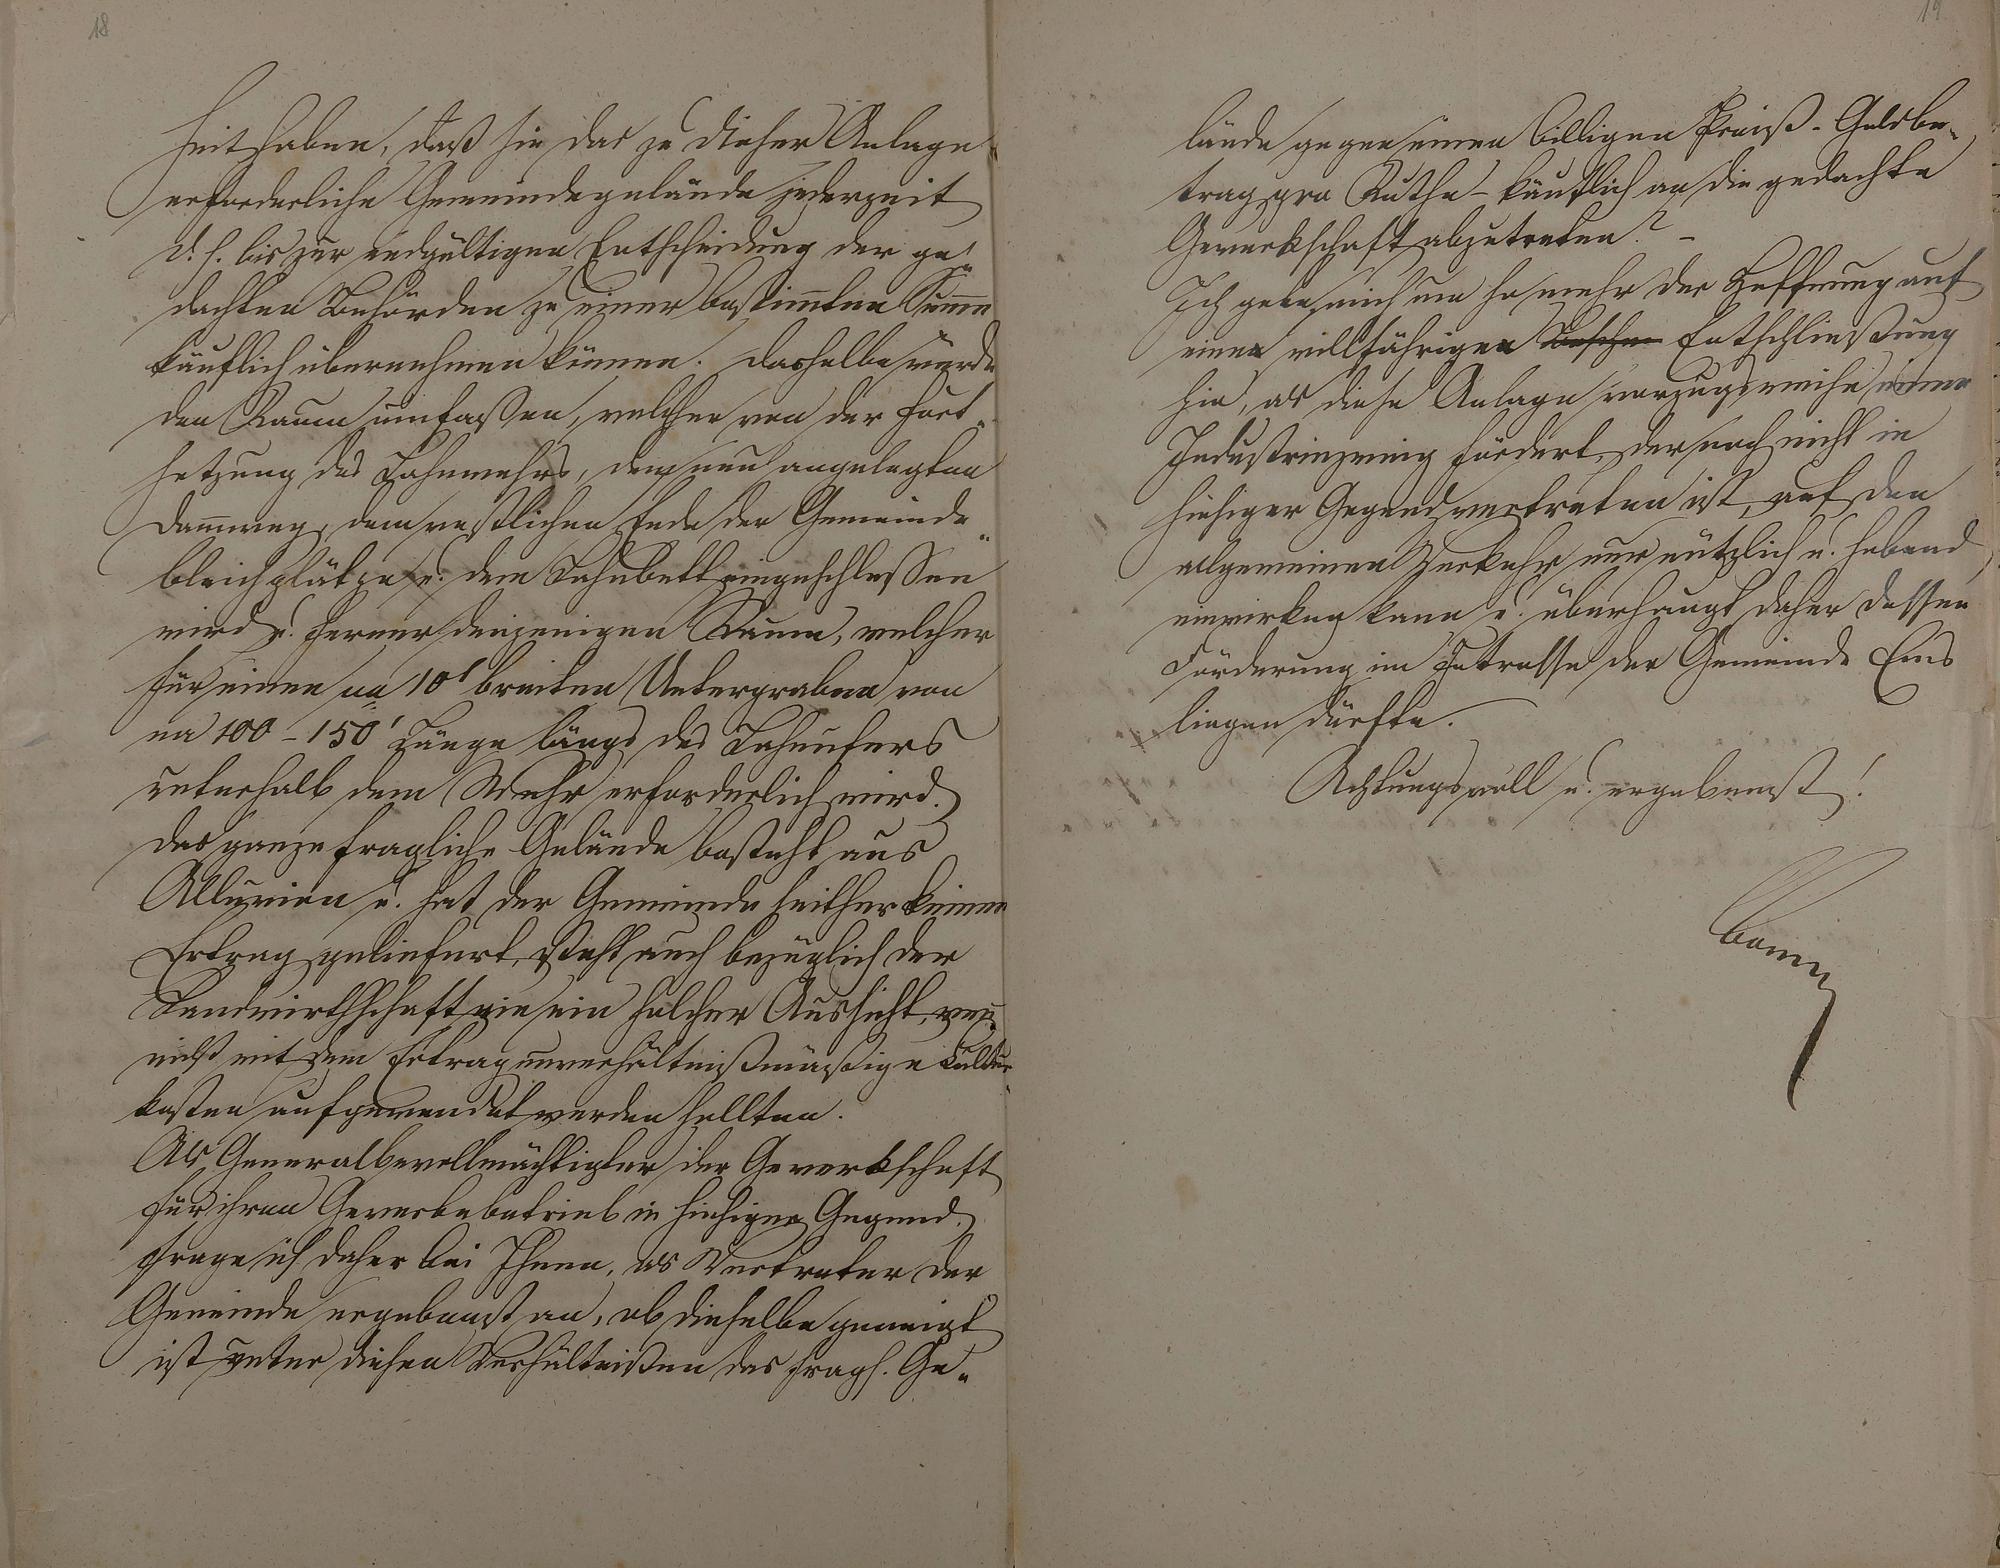 18
heit haben, daß sie das zu dieser Anlage
erforderliche Gemeindegelände jederzeit
d. h. bis zur endgültigen Entscheidung der ge-
dachten Behörden zu einer bestimmten Summe
käuflich übernehmen können. Dasselbe würde
den Raum umfassen, welcher von der Fort-
setzung des Lahnwehrs, dem neu angelegten
Dammweg, dem westlichen Ende der Gemeinde-
bleichplätze u. dem Lahnbett eingeschlossen
wird u. ferner denjenigen Raum, welcher
für einen ca 10' breiten Untergraben von
ca 100 - 150' Länge längs des Lahnufers
unterhalb dem Wehr erforderlich wird.
Das ganze fragliche Gelände besteht aus
Alluvion u. hat der Gemeinde seither keinen
Ertrag geliefert, steht auch bezüglich der
Landwirthschaft nie ein solcher Aussicht, wenn
nicht mit dem Ertrag unverhältnißmäßige Cultur-
kosten aufgewendet werden sollten.
Als Generalbevollmächtigter der Gewerkschaft
für ihren Gewerbebetrieb in hiesiger Gegend,
frage ich daher bei Ihnen, als Vertreter der
Gemeinde ergebenst an, ob dieselbe geneigt
ist unter diesen Verhältnißen das fragl. Ge-
19
lände gegen einen billigen Preiß - Geldbe-
trag pro Ruthe - käuflich an die gedachte
Gewerkschaft abzutreten? -
Ich gebe mich um so mehr der Hoffnung auf
eine willfährige Entschließung
hin, als diese Anlage vorzugsweise einen
Industriezweig fördert, der noch nicht in
hiesiger Gegend vertreten ist, auf den
allgemeinen Verkehr nur nützlich u. hebend
einwirken kann u. überhaupt daher dessen
Förderung im Intresse der Gemeinde Ems
liegen dürfte.
Achtungsvoll u. ergebenst!